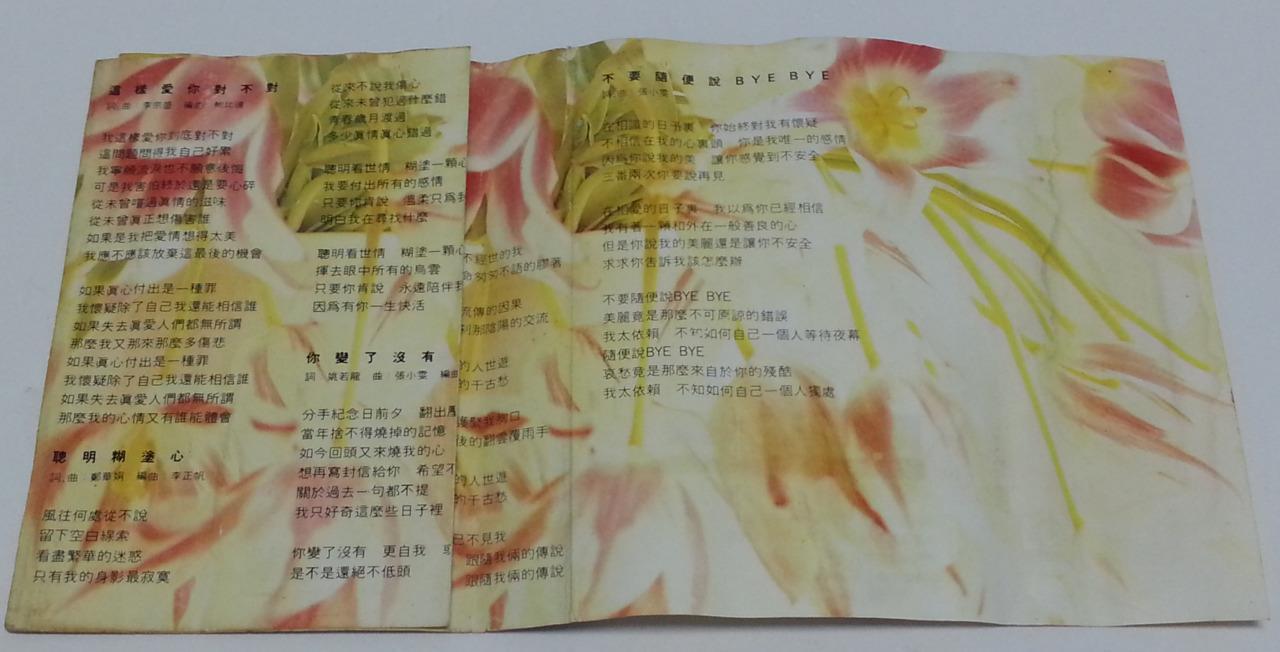 這樣愛你對不對
詞.曲 李宗盛 編曲 鮑比達
我這樣愛你到底對不對
這問題問得我自己好累
我寧願流淚也不願意後悔
可是我害怕終於還是要心碎
從未曾嚐過真情的滋味
從未曾真正想傷害誰
如果是我把愛情想得太美
我應不應該放棄這最後的機會
如果真心付出是一種罪
我懷疑除了自己我還能相信誰
如果失去真愛人們都無所謂
那麼我又那來那麼多傷悲
如果真心付出是一種罪
我懷疑除了自己我還能相信誰
如果失去真愛人們都無所謂
那麼我的心情又有誰能體會
聰明糊塗心
詞.曲 鄭華娟 編曲 李正帆
風往何處從不說
留下空白線索
看盡繁華的迷惑
只有我的身影最寂寞
從來不說我傷心
從來未曾犯過什麼錯
青春歲月渡過
多少真情真心錯過
聰明看世情 糊塗一顆心
我要付出所有的感情
只要你肯說 溫柔只為我
明白我在尋找什麼
聰明看世情 糊塗一顆心
揮去眼中所有的烏雲
只要你肯說 永遠陪伴我
因為有你一生快活
你變了沒有
詞 姚若龍 曲 張小雯 編曲
分手紀念日前夕 翻出
當年捨不得燒掉的記憶
如今回頭又來燒我的心
想再寫封信給你 希望不
關於過去一句都不提
我只好奇這麼些日子裡
你變了沒有 更自我
是不是還絕不低頭
不經世的我
匆匆不語的膠著
流傳的因果
剎那陰陽的交流
的人世遊
的千古愁
後的翻雲覆雨手
的人世遊
的千古愁
已不見我
跟隨我倆的傳說
跟隨我倆的傳說
不要隨便說BYE BYE
詞.曲 張小雯
在相識的日子裏 你始終對我有懷疑
不相信在我的心裏頭 你是我唯一的感情
因為你說我的美 讓你感覺到不安全
三番兩次你要說再見
在相愛的日子裏 我以為你已經相信
我有著一顆和外在一般善良的心
但是你說我的美麗還是讓你不安全
求求你告訴我該怎麼辦
不要隨便說BYE BYE
美麗竟是那麼不可原諒的錯誤
我太依賴 不知如何自己一個人等待夜幕
隨便說BYE BYE
哀愁竟是那麼來自於你的殘酷
我太依賴 不知如何自己一個人獨處